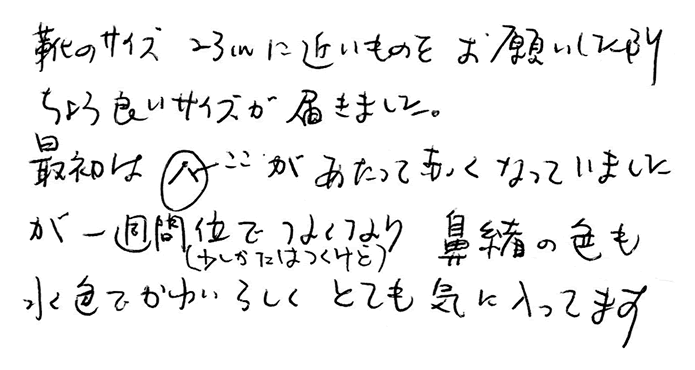 靴のサイズ 23cmに近いものをお願いした所
ちょうど良いサイズが届きました。
最初は ここがあたって赤くなっていました
が一週間位でつよくなり 鼻緒の色も
(少しかたはつくけど)
水色でかわいらしく とても気に入ってます